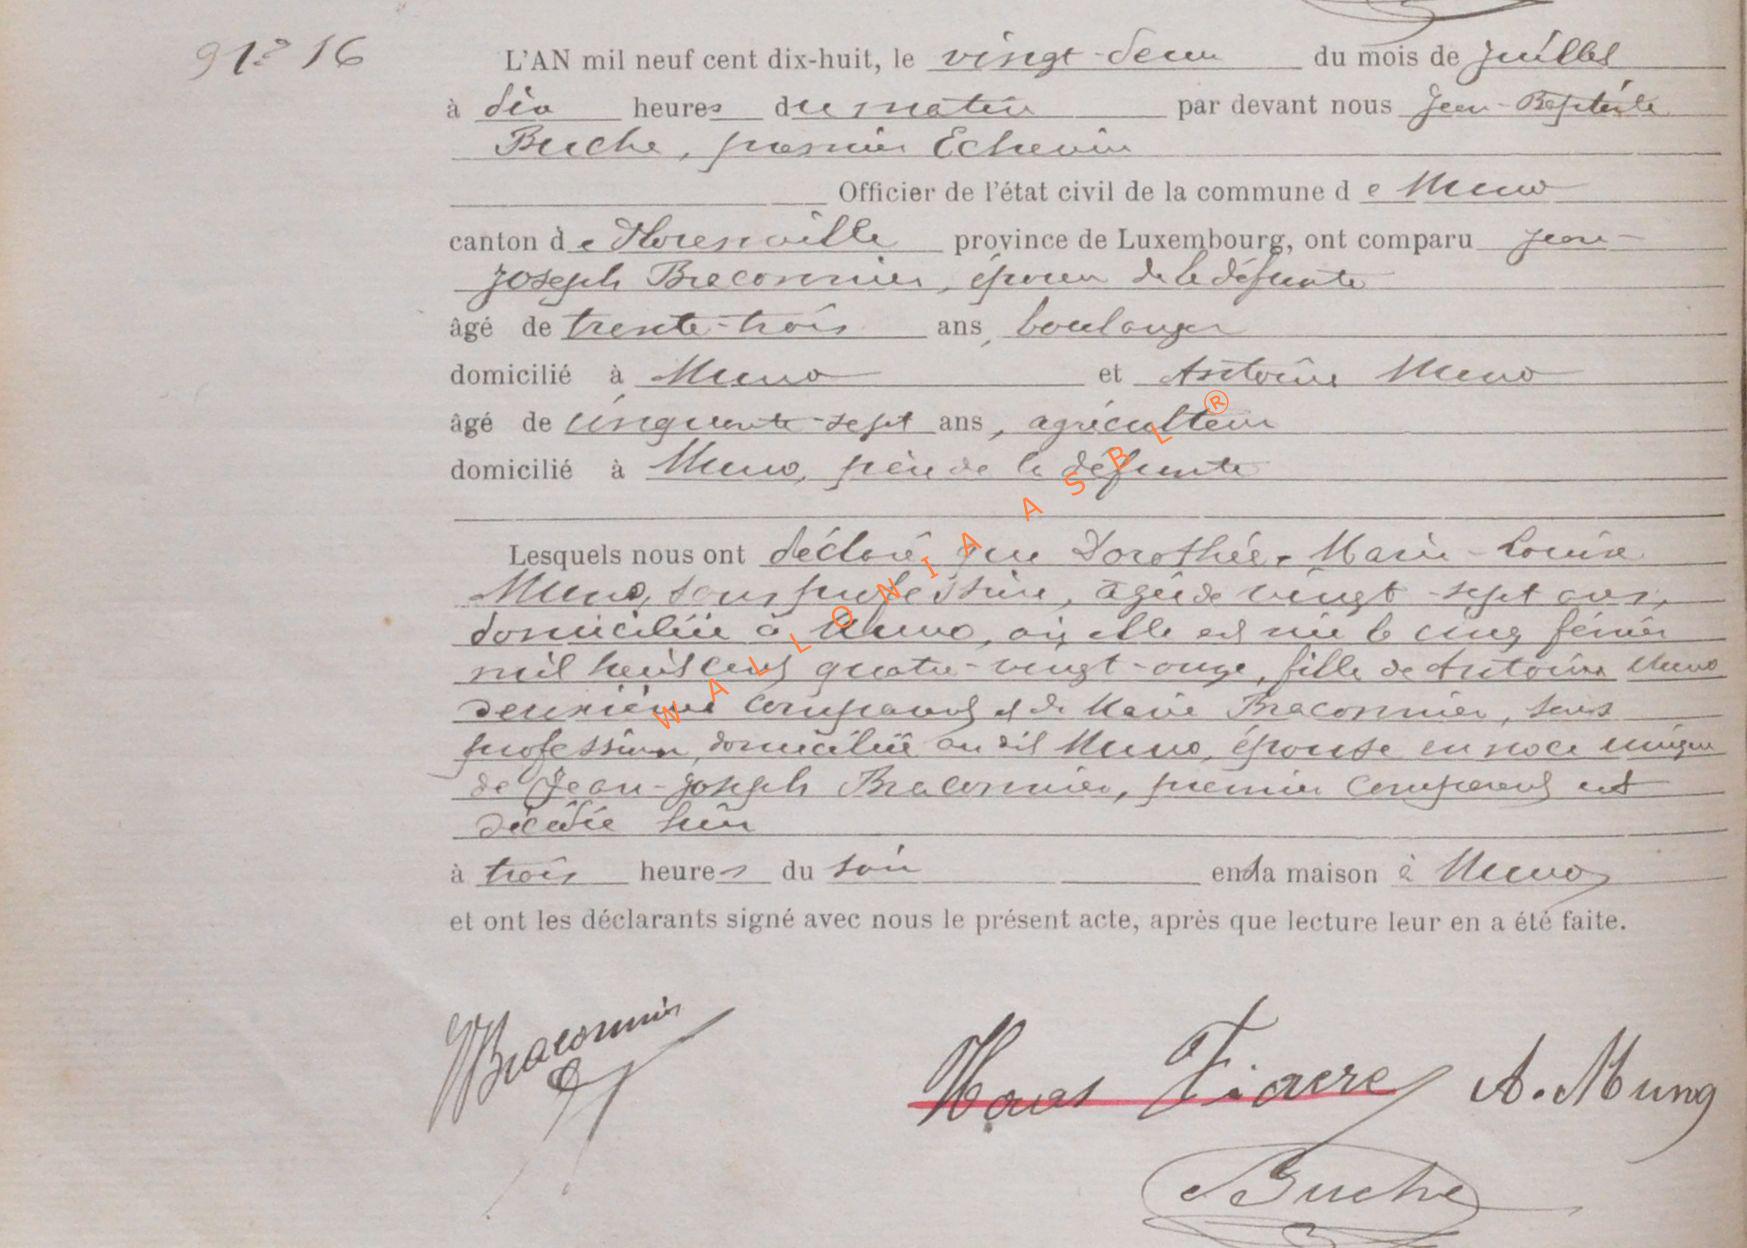 N° 16
L'AN mil neuf cent dix-huit, le vingt-deux du mois de juillet
à dix heures du matin par devant nous Jean-Baptiste
Buche, premier Echevin
Officier de l'état civil de la commune de Muno
canton de Florenville province de Luxembourg, ont comparu Jean-
Joseph Braconnier, époux de la défunte
âgé de trente-trois ans, boulanger
domicilié à Muno et Antoine Muno
âgé de cinquante-sept ans, agriculteur
domicilié à Muno, père de la défunte
Lesquels nous ont déclaré que Dorothée-Marie-Louise
Muno, sans profession, agée de vingt-sept ans,
domiciliée à Muno, où elle est née le cinq février
mil huit cent quatre-vingt-onze, fille de Antoine Muno
deuxième comparant et de Marie Braconnier, sans
profession, domiciliée au dit Muno, épouse en noce unique
de Jean-Joseph Braconnier, premier comparant est
décédée hier
à trois heures du soir en la maison à Muno
et ont les déclarants signé avec nous le présent acte, après que lecture leur en a été faite.
Braconnier
Fiacre A. Muno
Buche
WALLONIA ASBL ®